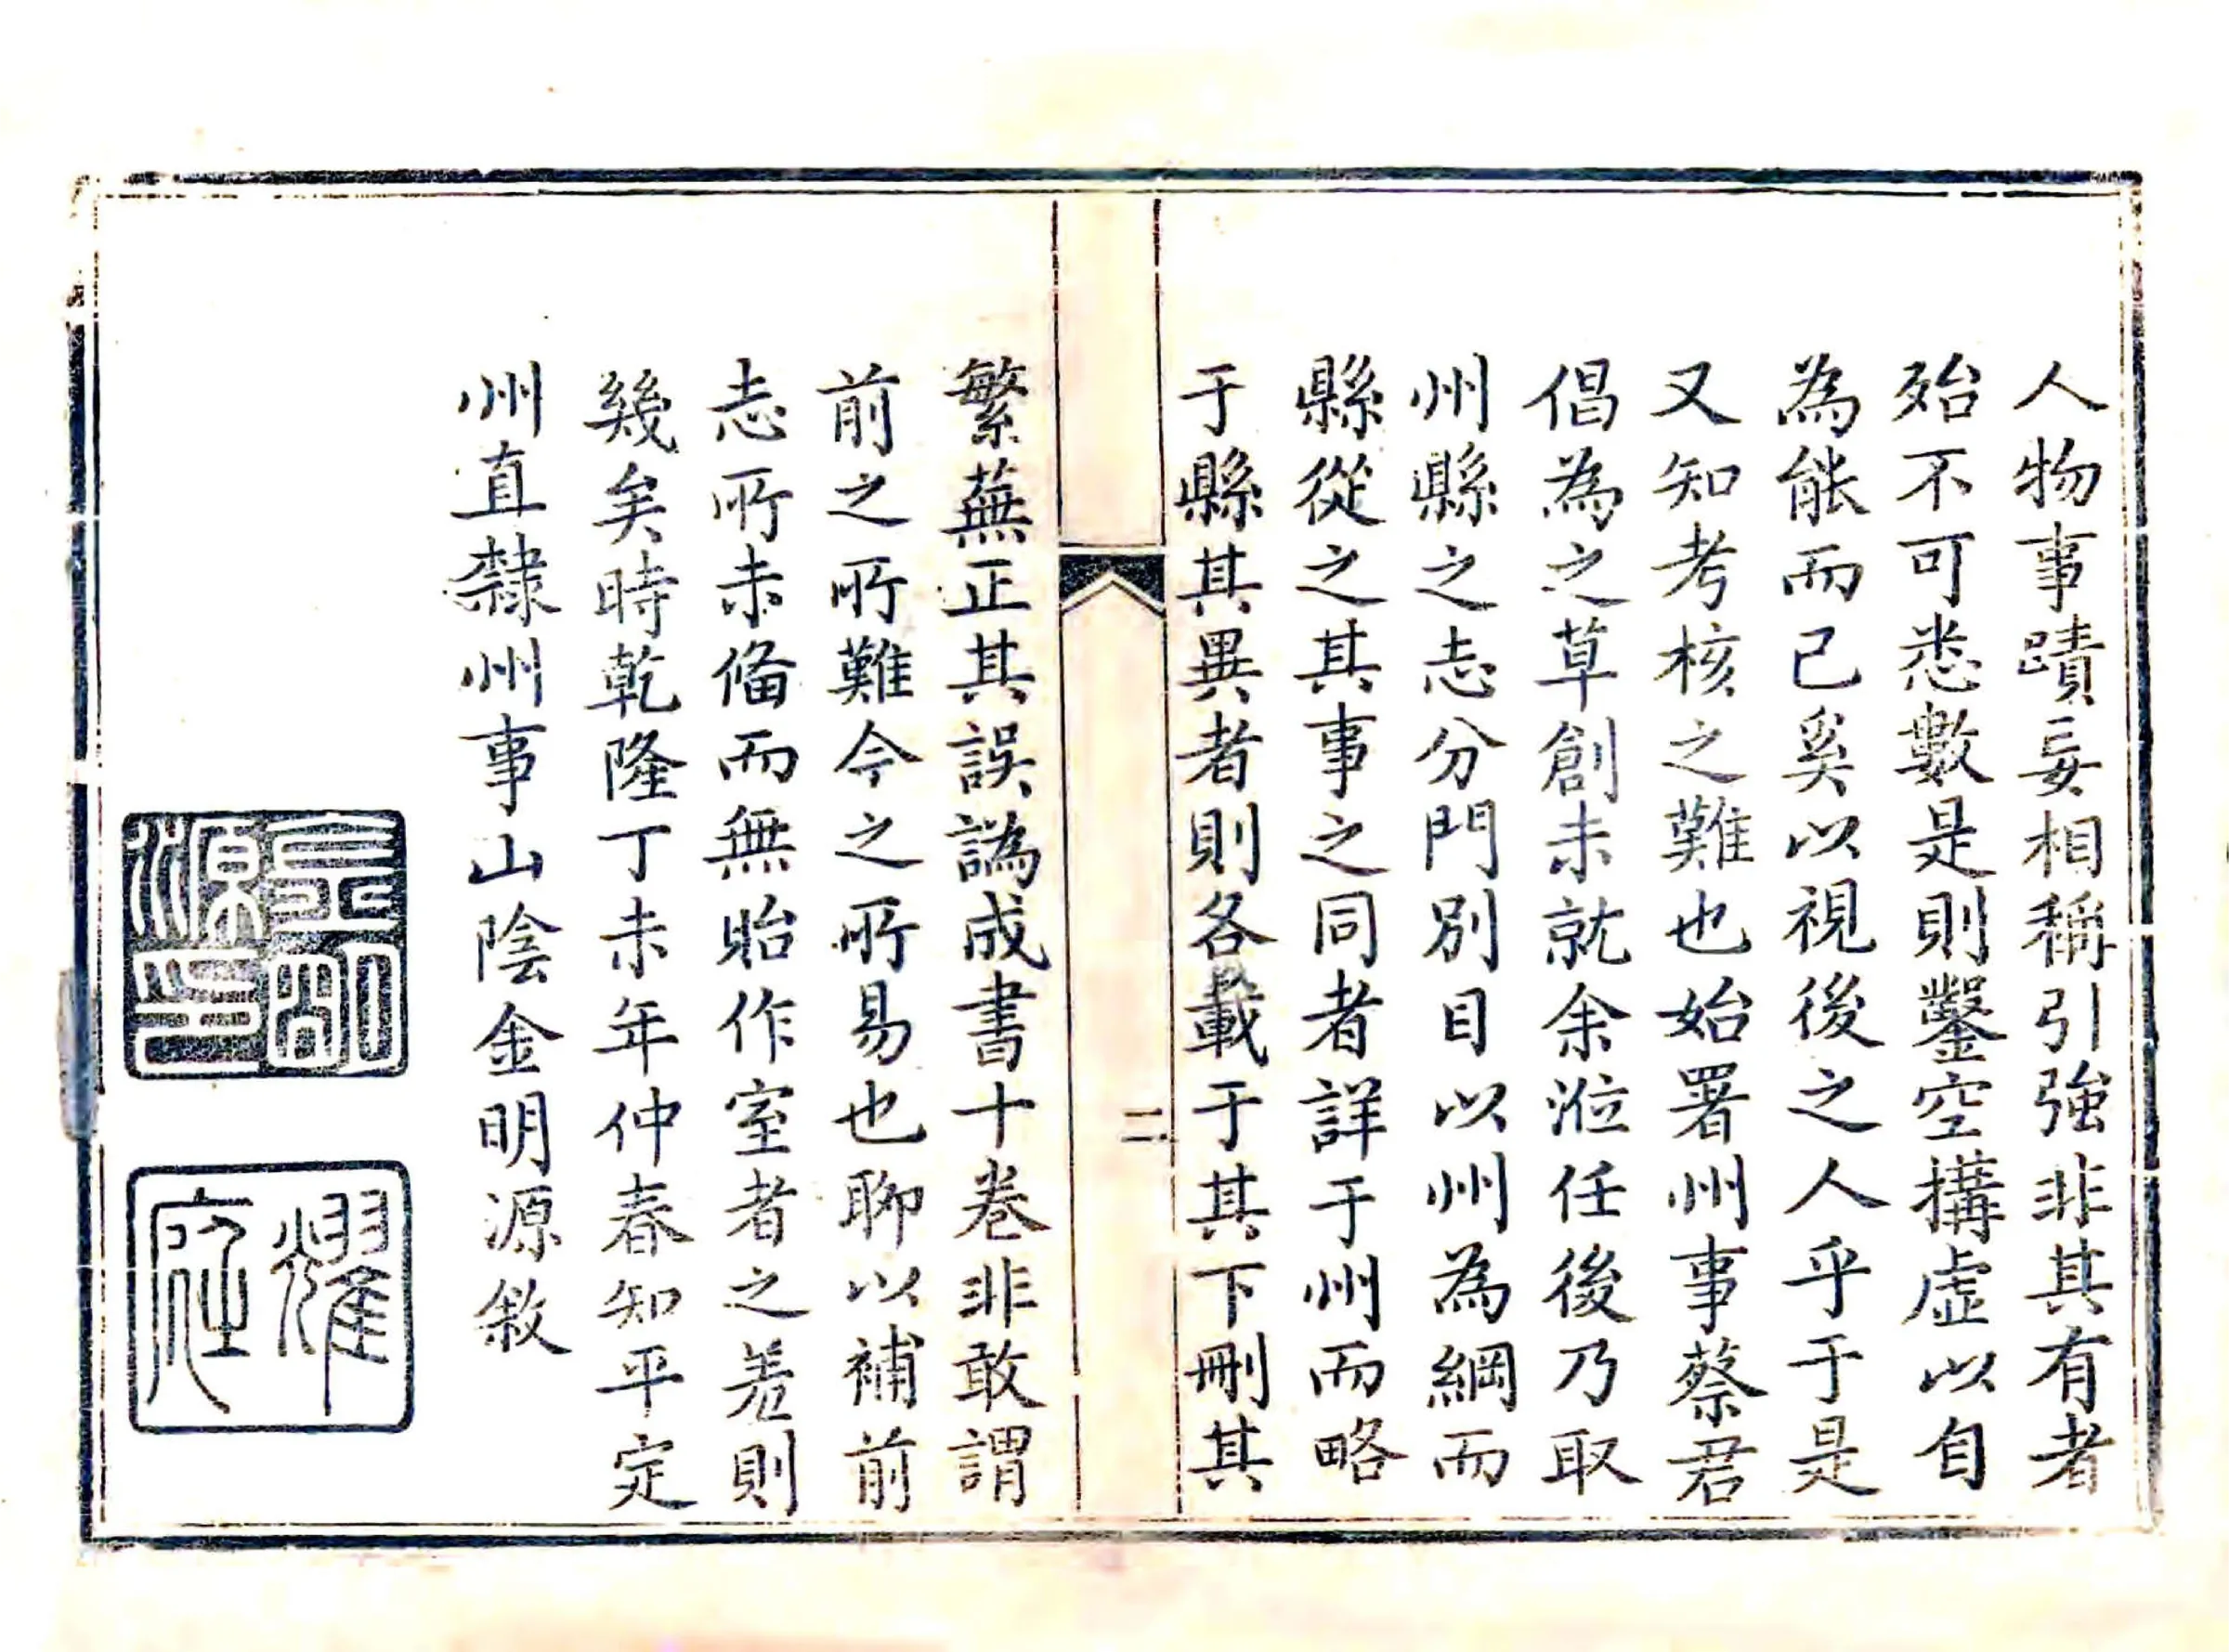 人物事蹟妄相稱引強非其有者
殆不可悉數是則鑿空搆虛以自
為能而已奚以視後之人乎于是
又知考核之難也始署州事蔡君
倡為之草創未就余涖任後乃取
州縣之志分門別目以州為綱而
縣從之其事之同者詳于州而略
于縣其異者則各載于其下刪其
二
繁蕪正其誤譌成書十卷非敢謂
前之所難今之所易也聊以補前
志所未俻而無貽作室者之羞則
幾矣時乾隆丁未年仲春知平定
州直隸州事山陰金明源敘
金明源印
耀庭